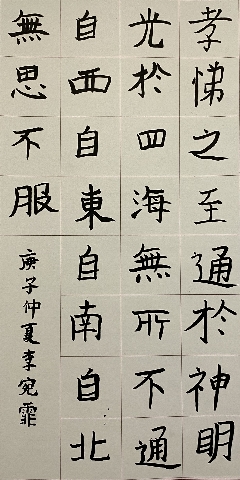 孝悌之至通於神明
光於四海無所不通
自西自東自南自北
無思不服
庚子仲夏李宛霏